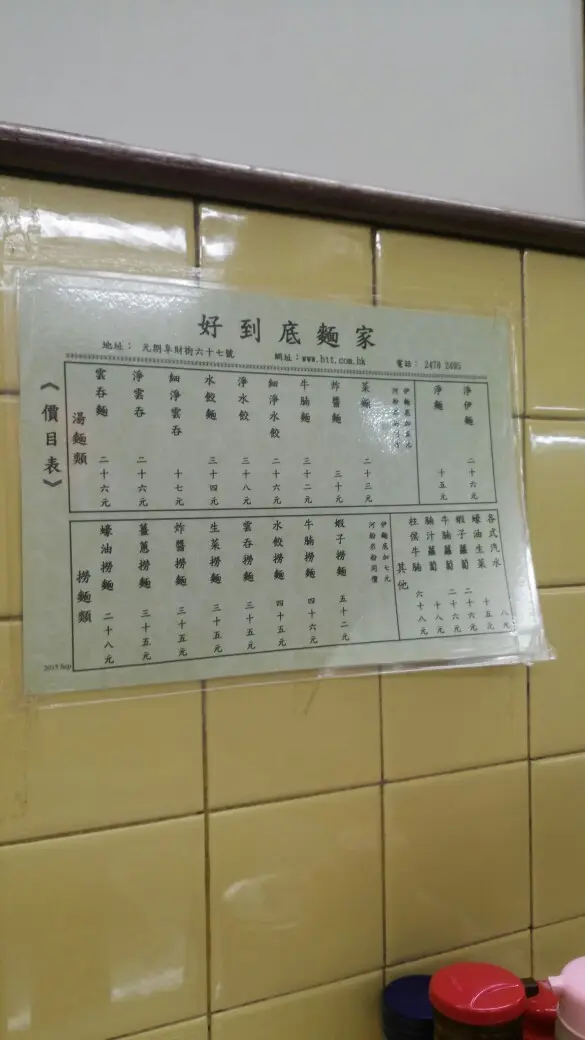 好到底麵家
地址： 元朗阜財街六十七號 網址：www.htt.com.hk 電話： 2478 2495
《價目表》
湯麵類
雲吞麵 二十六元
淨雲吞 二十六元
細淨雲吞 十七元
水餃麵 三十四元
淨水餃 三十八元
細淨水餃 二十六元
牛腩麵 三十二元
炸醬麵 三十元
菜麵 二十三元
伊麵底加五元
淨麵 十五元
淨伊麵 二十六元
撈麵類
蠔油撈麵 二十八元
薑蔥撈麵 三十五元
炸醬撈麵 三十五元
生菜撈麵 三十五元
雲吞撈麵 三十五元
水餃撈麵 四十五元
牛腩撈麵 四十六元
蝦子撈麵 五十二元
伊麵底加七元
河粉米粉同價
其他
柱侯牛腩 六十八元
腩汁蘿蔔 十八元
牛腩蘿蔔 二十六元
蝦子蘿蔔 二十六元
蠔油生菜 十五元
各式汽水 八元
2015 Sep